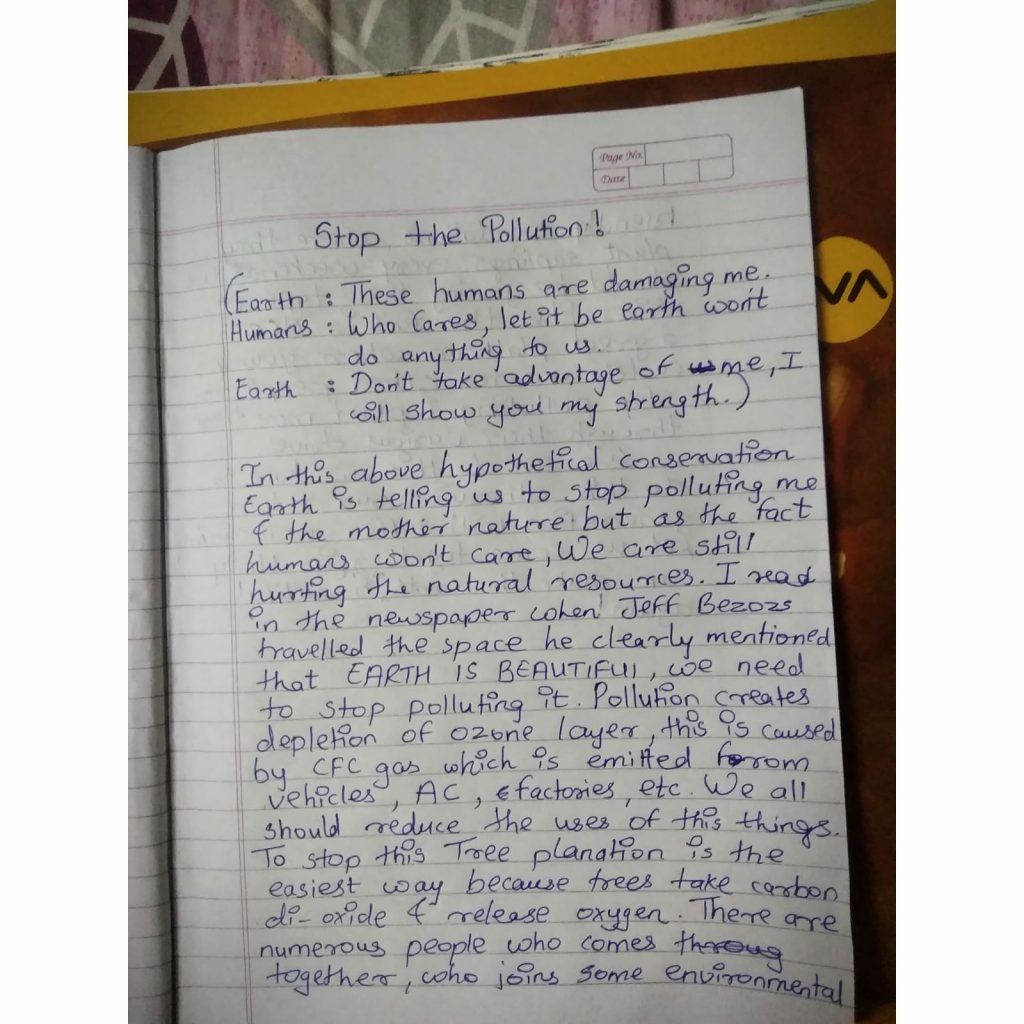 Page No.
Date
Stop the Pollution!
(Earth : These humans are damaging me.
Humans : Who Cares, let it be earth won't
do anything to us.
Earth : Don't take advantage of me, I
will show you my strength.)
In this above hypothetical conservation
Earth is telling us to stop polluting me
& the mother nature but as the fact
humans won't care, We are still
hurting the natural resources. I read
in the newspaper when Jeff Bezozs
travelled the space he clearly mentioned
that EARTH IS BEAUTIFUl, we need
to stop polluting it. Pollution creates
depletion of ozone layer, this is caused
by CFC gas which is emitted from
vehicles, AC, factories, etc. We all
should reduce the uses of this things.
To stop this Tree planation is the
easiest way because trees take carbon
di-oxide & release oxygen. There are
numerous people who comes
together, who joins some environmental
VA